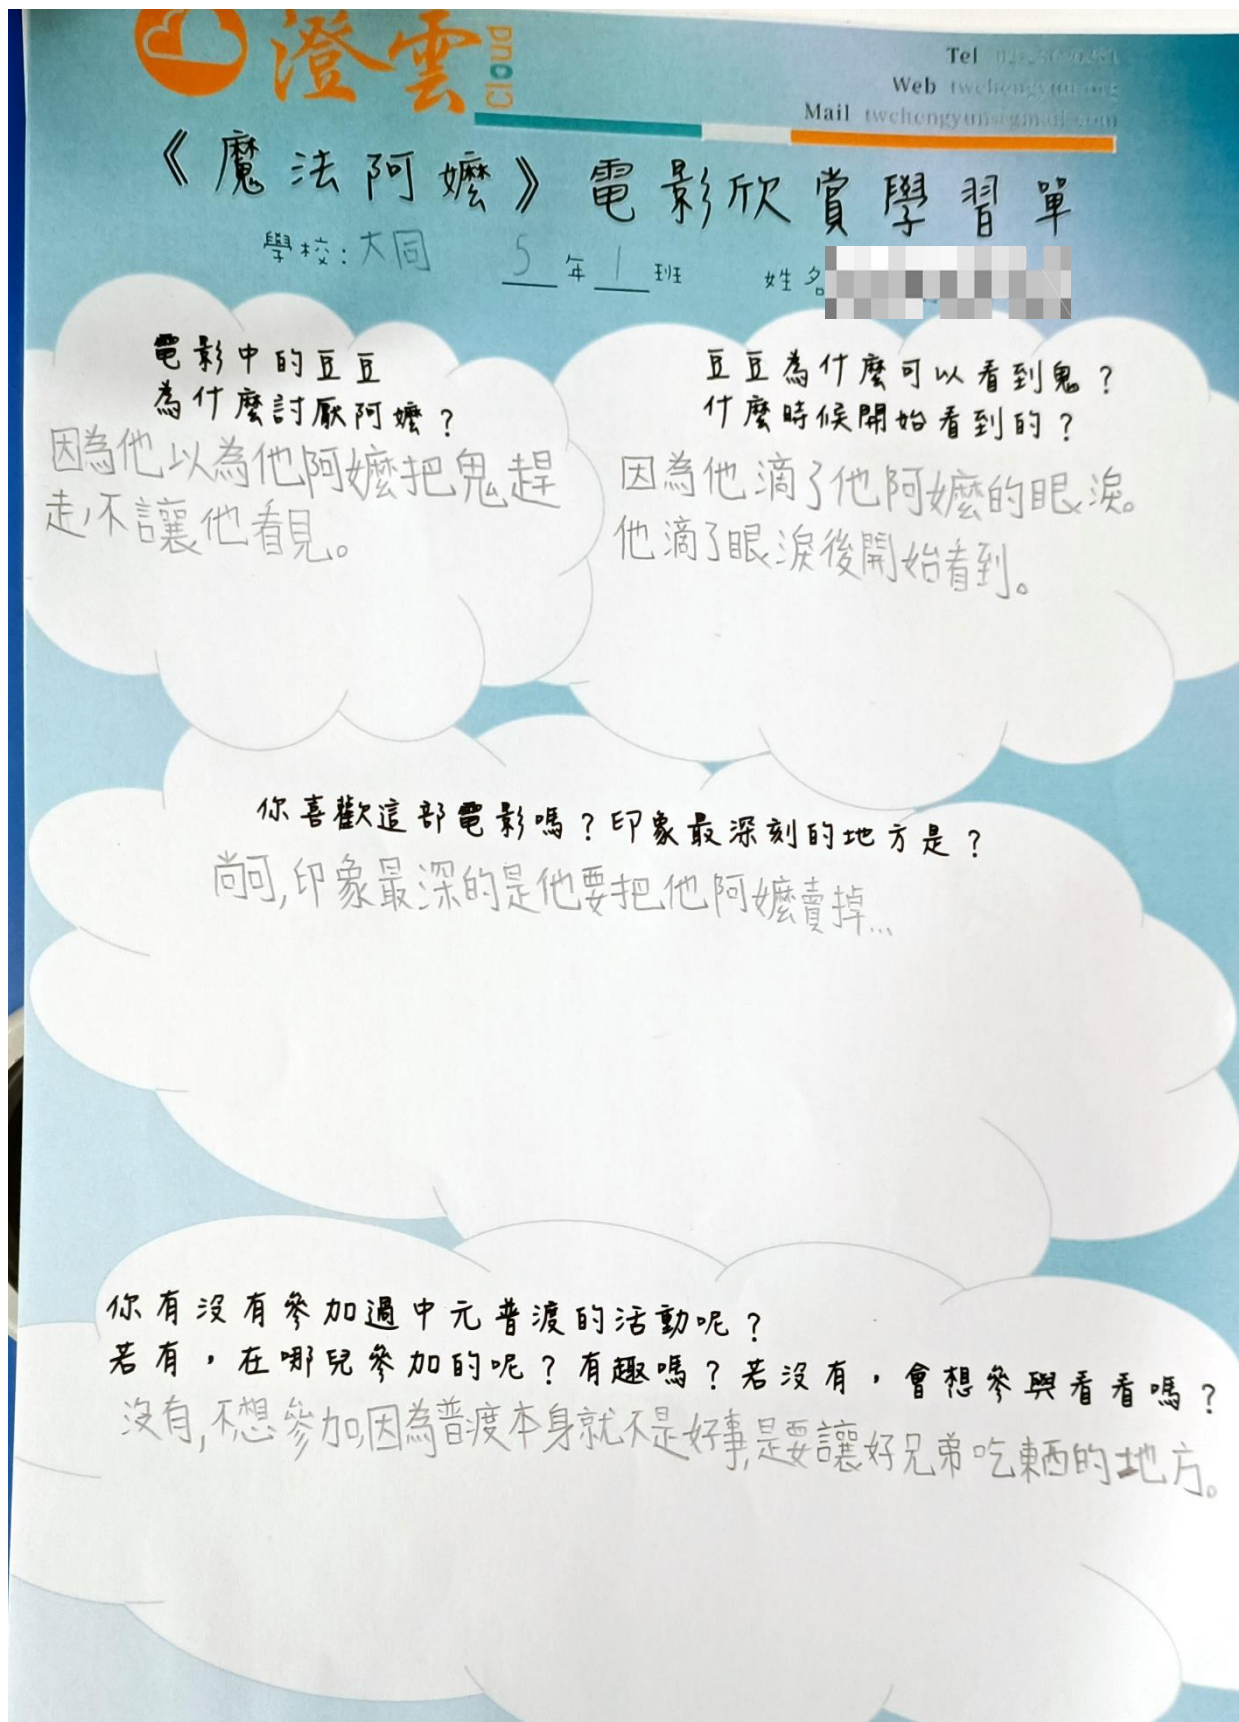 澄雲
Cloud
Tel
Web twchengyun.org
Mail twchengyun@gmail.com
《魔法阿嬤》電影欣賞學習單
學校：大同 5年1班 姓名
電影中的豆豆
為什麼討厭阿嬤？
因為他以為他阿嬤把鬼趕
走,不讓他看見。
豆豆為什麼可以看到鬼？
什麼時候開始看到的？
因為他滴了他阿嬤的眼淚。
他滴了眼淚後開始看到。
你喜歡這部電影嗎？印象最深刻的地方是？
尚可,印象最深的是他要把他阿嬤賣掉...
你有沒有參加過中元普渡的活動呢？
若有，在哪兒參加的呢？有趣嗎？若沒有，會想參與看看嗎？
沒有,不想參加,因為普渡本身就不是好事,是要讓好兄弟吃東西的地方。